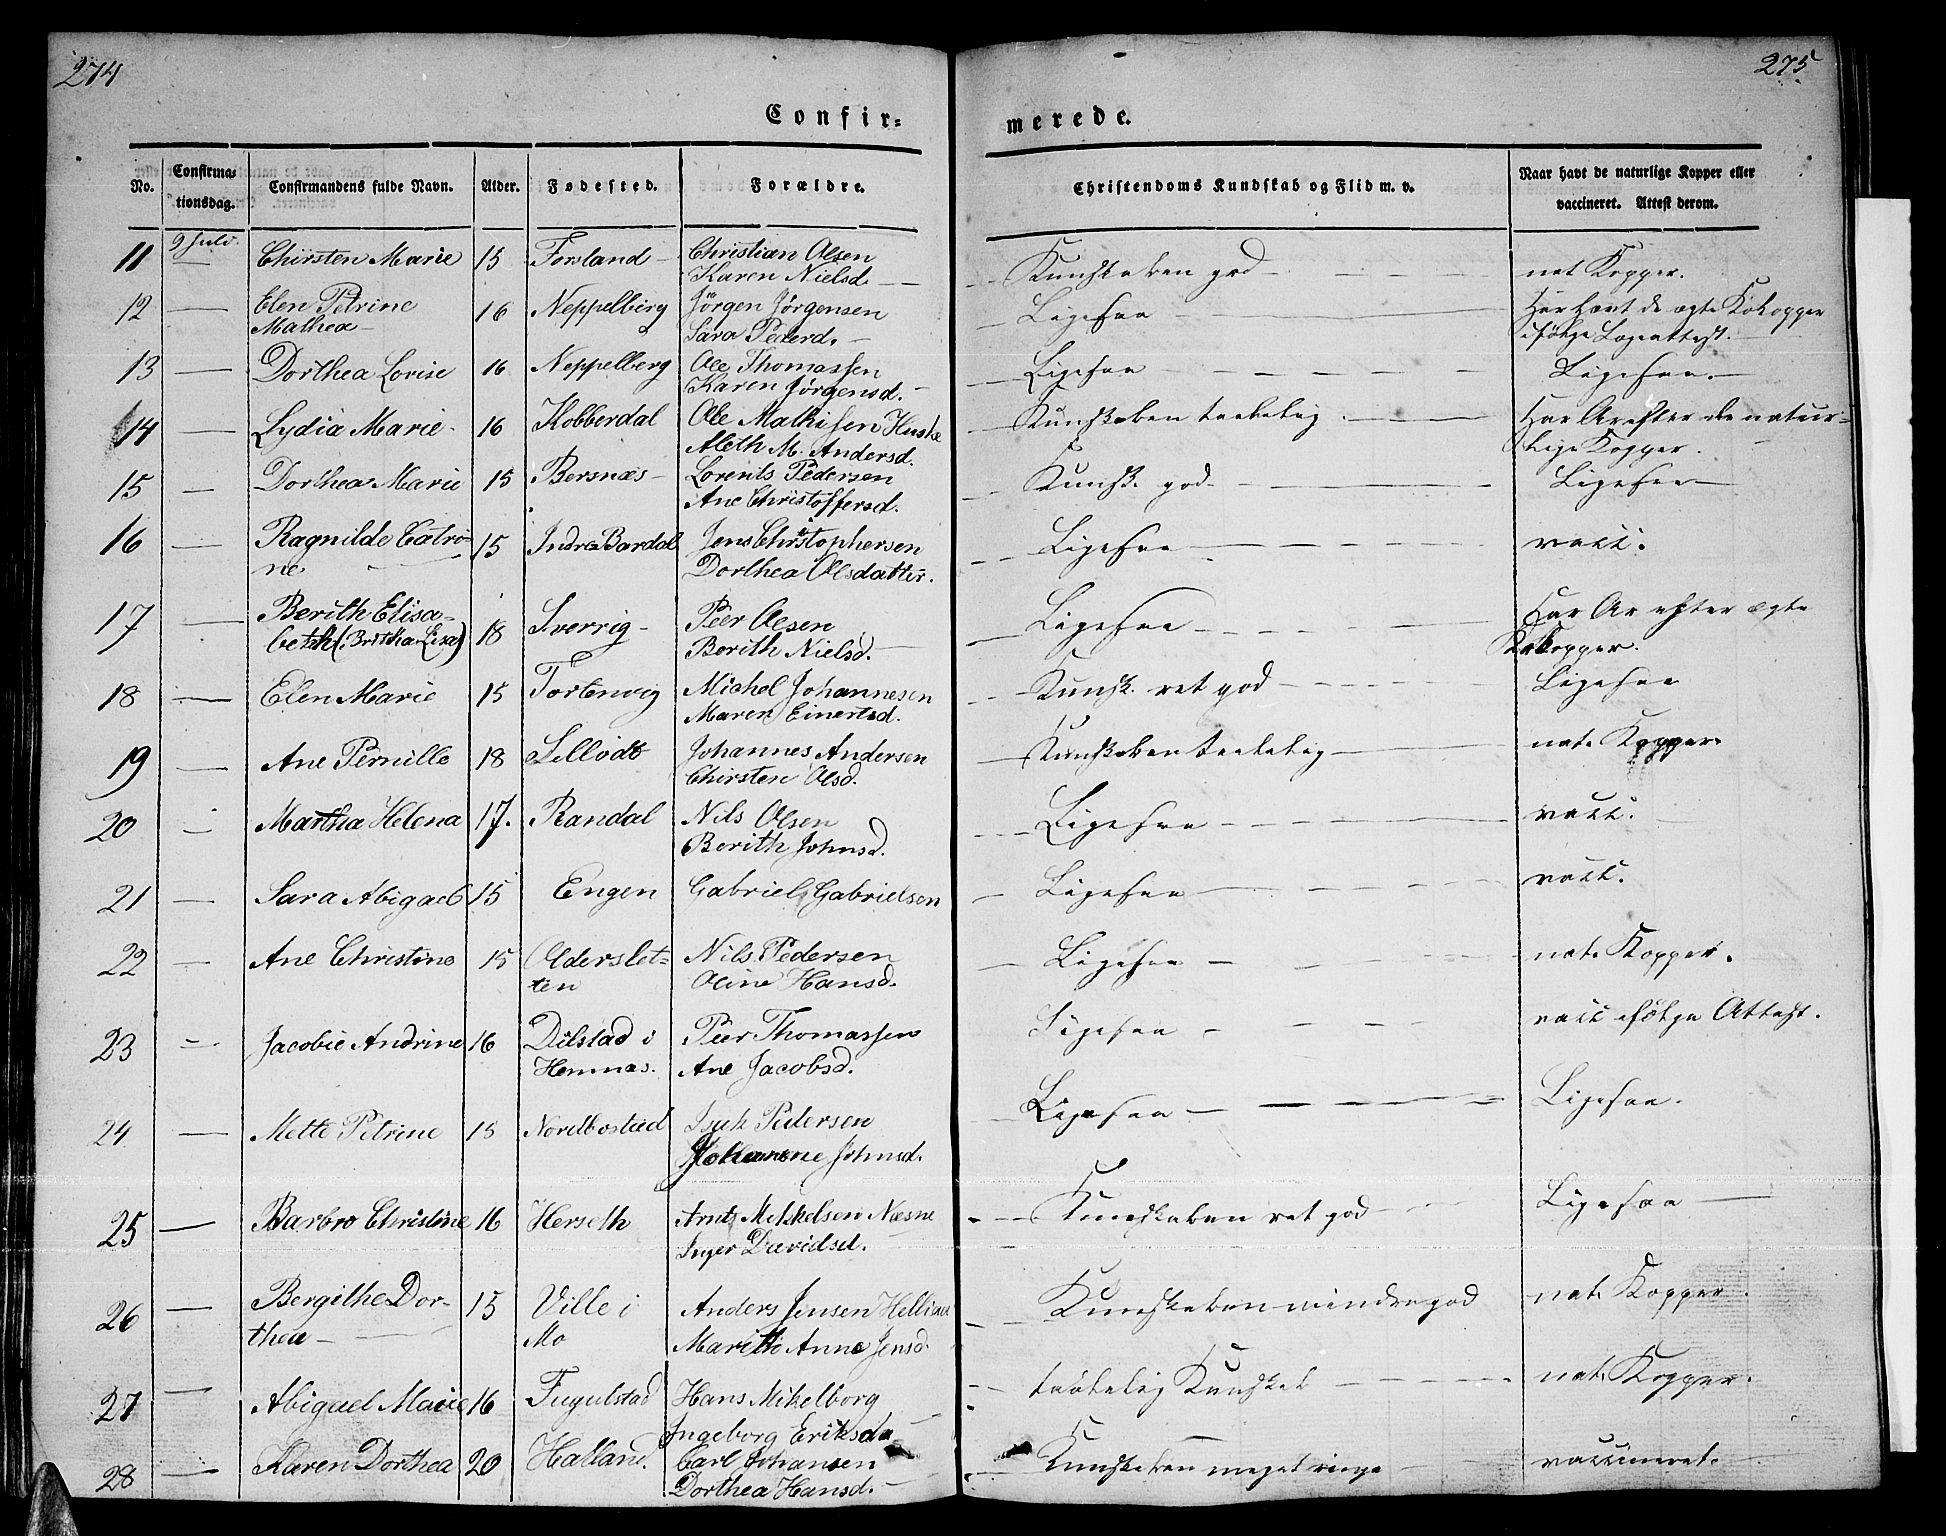 274
275
Confir=
merede.
No.
Confirma=
tionsdag.
Confirmandens fulde Navn.
Alder.
Fødested.
Forældre.
Christendoms Kundskab og Flid m. v.
Naar havt de naturlige Kopper eller
vaccineret. Attest derom.
11 9 Juli Chirsten Marie 15 Forsland Christian Olsen
Karen Nielsd. Kundskaben god nat Kopper.
12 Elen Petrine 16 Neppelberg Jörgen Jørgensen Ligesaa Har havt de ægte Kokopper
Mathea Sara Pederd. ifølge
13 Dorthea Lovise 16 Neppelberg Ole Thomassen Ligesaa Ligesaa.
Karen Jørgensd.
14 Lydia Marie 16 Kobberdal Ole Mathisen Huske Kundskaben taalelig Har Ar efter de natur=
Aleth M. Andersd. lige Kopper.
15 Dorthea Marie 15 Bersnæs Lorents Pedersen Kundsk. god Ligesaa
Ane Christoffersd.
16 Ragnilde Catri= 15 Indre Bardal Jens Christophersen Ligesaa vacc.
ne Dorthea Olsdatter.
17 Berith Elisa= 18 Sverrig Peer Olsen Ligesaa Har Ar efter ægte
beth (: Britha Lisa) Berith Nielsd. Kokopper.
18 Elen Marie 15 Tortenvig Michel Johannesen Kundsk. ret god Ligesaa
Maren Einertsd.
19 Ane Pernille 18 Johannes Andersen Kundskaben taalelig nat. Kopper
Chirsten Olsd.
20 Martha Helena 17. Randal Nils Olsen Ligesaa vacc.
Berith Johnsd.
21 Sara Abigael 15 Engen Gabriel Gabrielsen Ligesaa vacc.
22 Ane Christine 15 Olderslet= Nils Pedersen Ligesaa nat. Kopper.
ten Oline Hansd.
23 Jacobie Andrine 16 Dilstad i Peer Thomassen Ligesaa vacc ifølge Attest.
Hemnæs. Ane Jacobsd.
24 Mette Petrine 15 Nordbostad Isak Pedersen Ligesaa Ligesaa.
Johanne Johnsd.
25 Barbro Christine 16 Herseth Arnt Mikkelsen Næsne Kundskaben ret god Ligesaa
Inger Davidsd.
26 Bergithe Dor= 15 Ville i Anders Jensen Kundskaben mindre god nat. Kopper.
thea Mo Marith Anne Jensd.
27 Abigael Marie 16 Fugulstad Hans Mikelborg taalelig Kundskab nat. Kopper.
Ingeborg Eriksda
28 Karen Dorthea 20 Halland. Carl Johansen Kundskaben meget ringe vaccineret.
Dorthea Hansd.